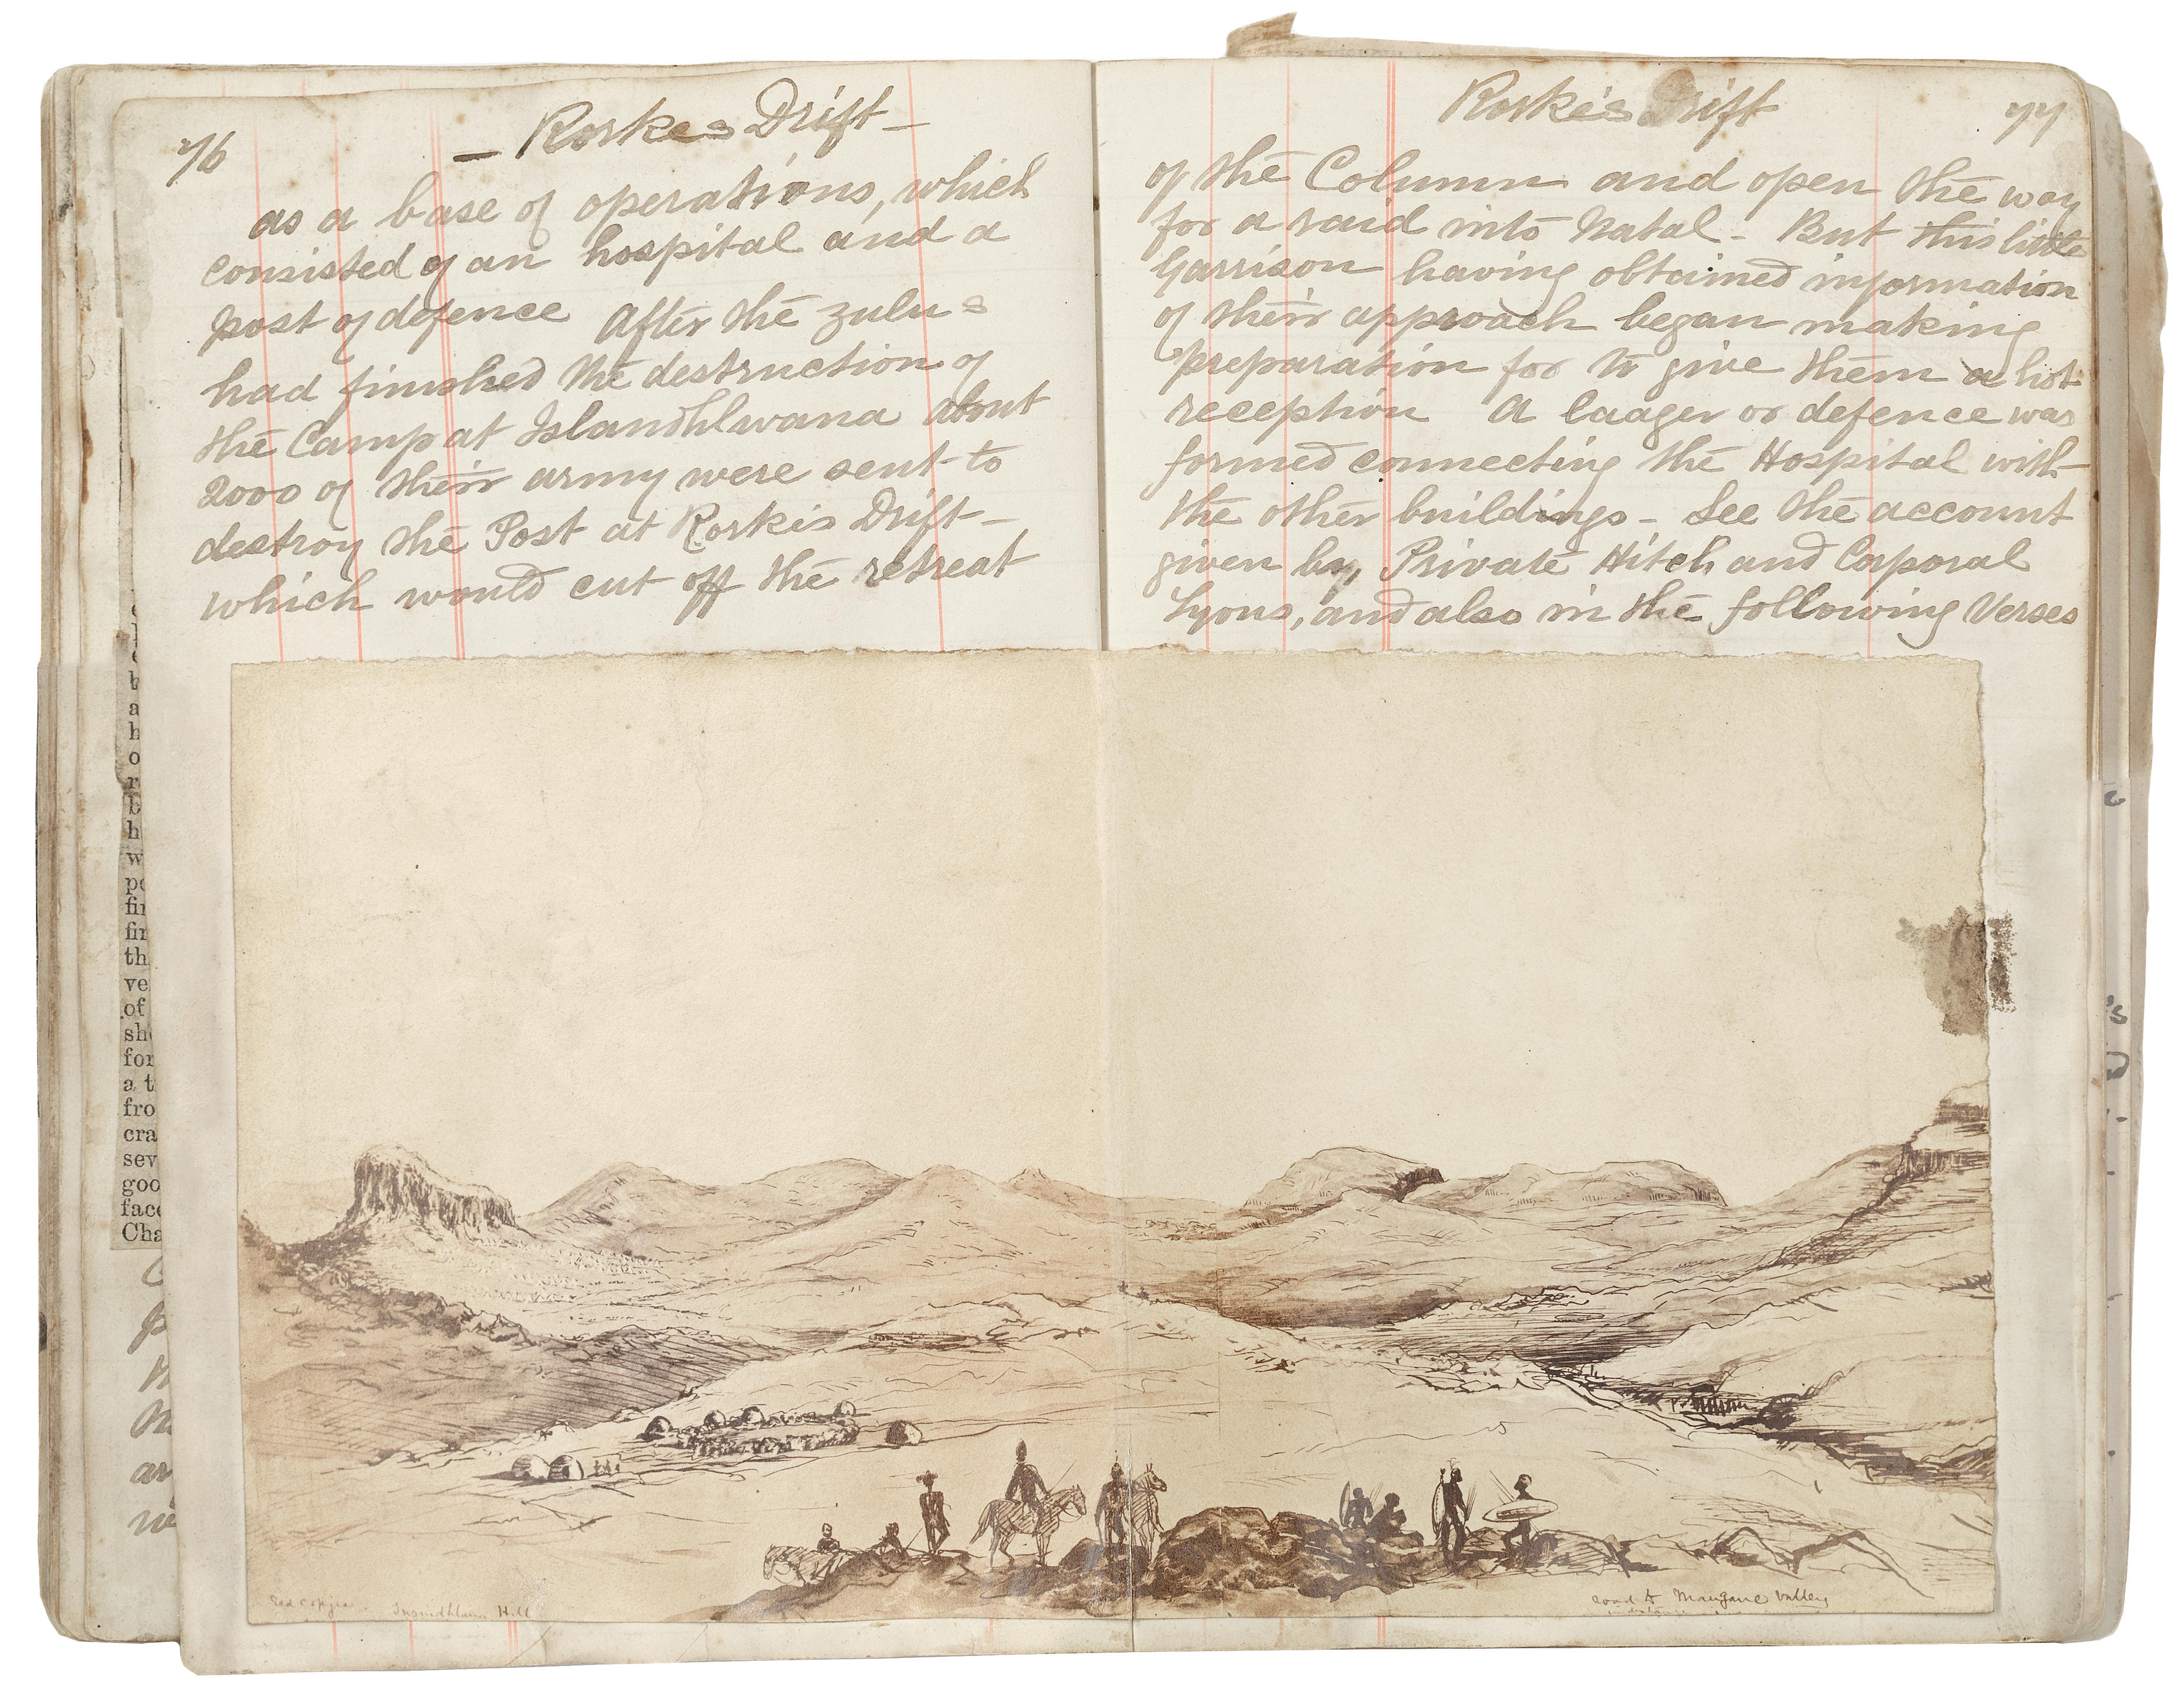 76
— Rorkes Drift —
as a base of operations, which
consisted of an hospital and a
post of defence After the zulus
had finished the destruction of
the Camp at Islandhlwana about
2000 of their army were sent to
destroy the Post at Rorke's Drift —
which would cut off the retreat
Rorke's Drift
77
of the Column and open the way
for a raid into Natal - But this little
Garrison having obtained information
of their approach began making
preparation for to give them a hot
reception A laager or defence was
formed connecting the Hospital with
the other buildings - See the account
given by Private Hitch and Corporal
Lyons, and also in the following Verses
a
h
o
r
b
h
w
fir
th
ve
of
for
a t
fro
cra
sev
goo
face
Cha
Hill
road to Mangane Valley